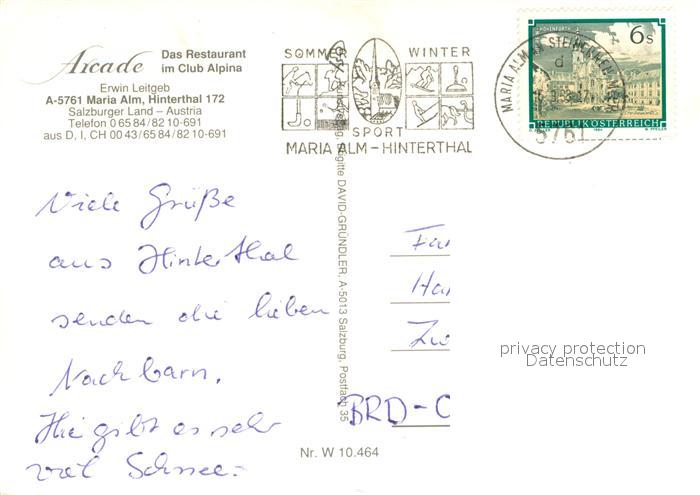 Arcade Das Restaurant
im Club Alpina
Erwin Leitgeb
A-5761 Maria Alm, Hinterthal 172
Salzburger Land – Austria
Telefon 0 65 84 / 82 10-691
aus D, I, CH 00 43/65 84/82 10-691
SOMMER WINTER
SPORT
MARIA ALM – HINTERTHAL
MARIA ALM AM STEINERNEN MEER
d
5761
6s
REPUBLIK ÖSTERREICH
Viele Grüße
aus Hinterthal
senden die lieben
Nachbarn.
Hie gibt es sehr
viel Schnee.
Brigitte DAVID-GRÜNDLER, A-5013 Salzburg, Postfach 35
Fa
Ha
Zw
BRD-
privacy protection
Datenschutz
Nr. W 10.464